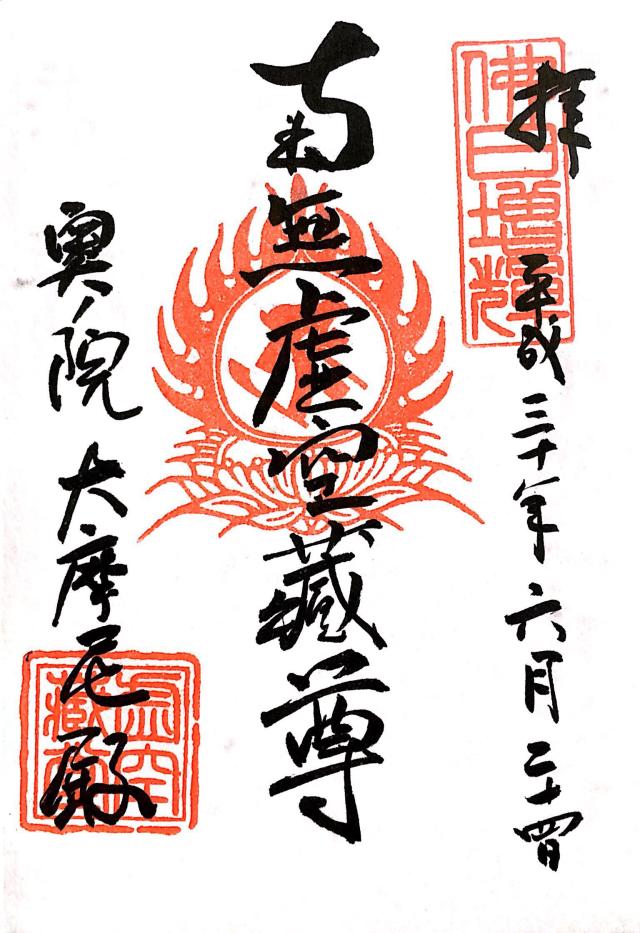 拝
平成三十年六月二十四日
佛日増輝
南無虚空藏尊
奥ノ院 大摩尼殿
虚空藏